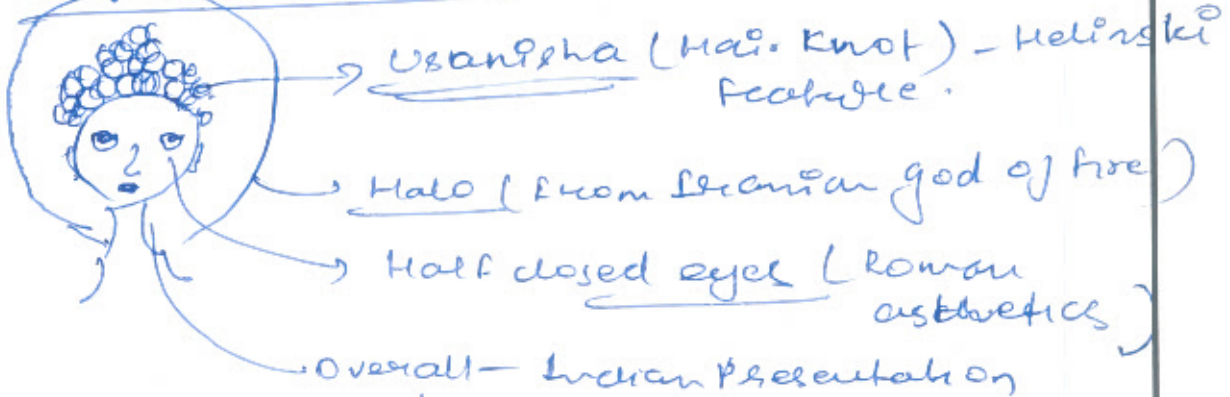 Usanisha (Hai. Knot) - Helinski
feature.
Halo (from Iranian god of fire)
Half closed eyes (Roman
asthetics)
Overall - Indian Presentation